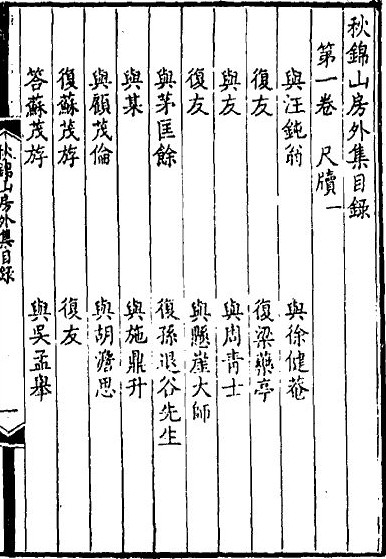 秋錦山房外集目録
第一卷 尺牘一
與汪鈍翁 與徐健菴
復友 復梁藥亭
與友 與周青士
復友 與懸崖大師
與茅匡餘 復孫退谷先生
與某 與施鼎升
與顧茂倫 與胡澹思
復蘇茂斿 復友
答蘇茂斿 與吳孟舉
秋錦山房外集目録 一